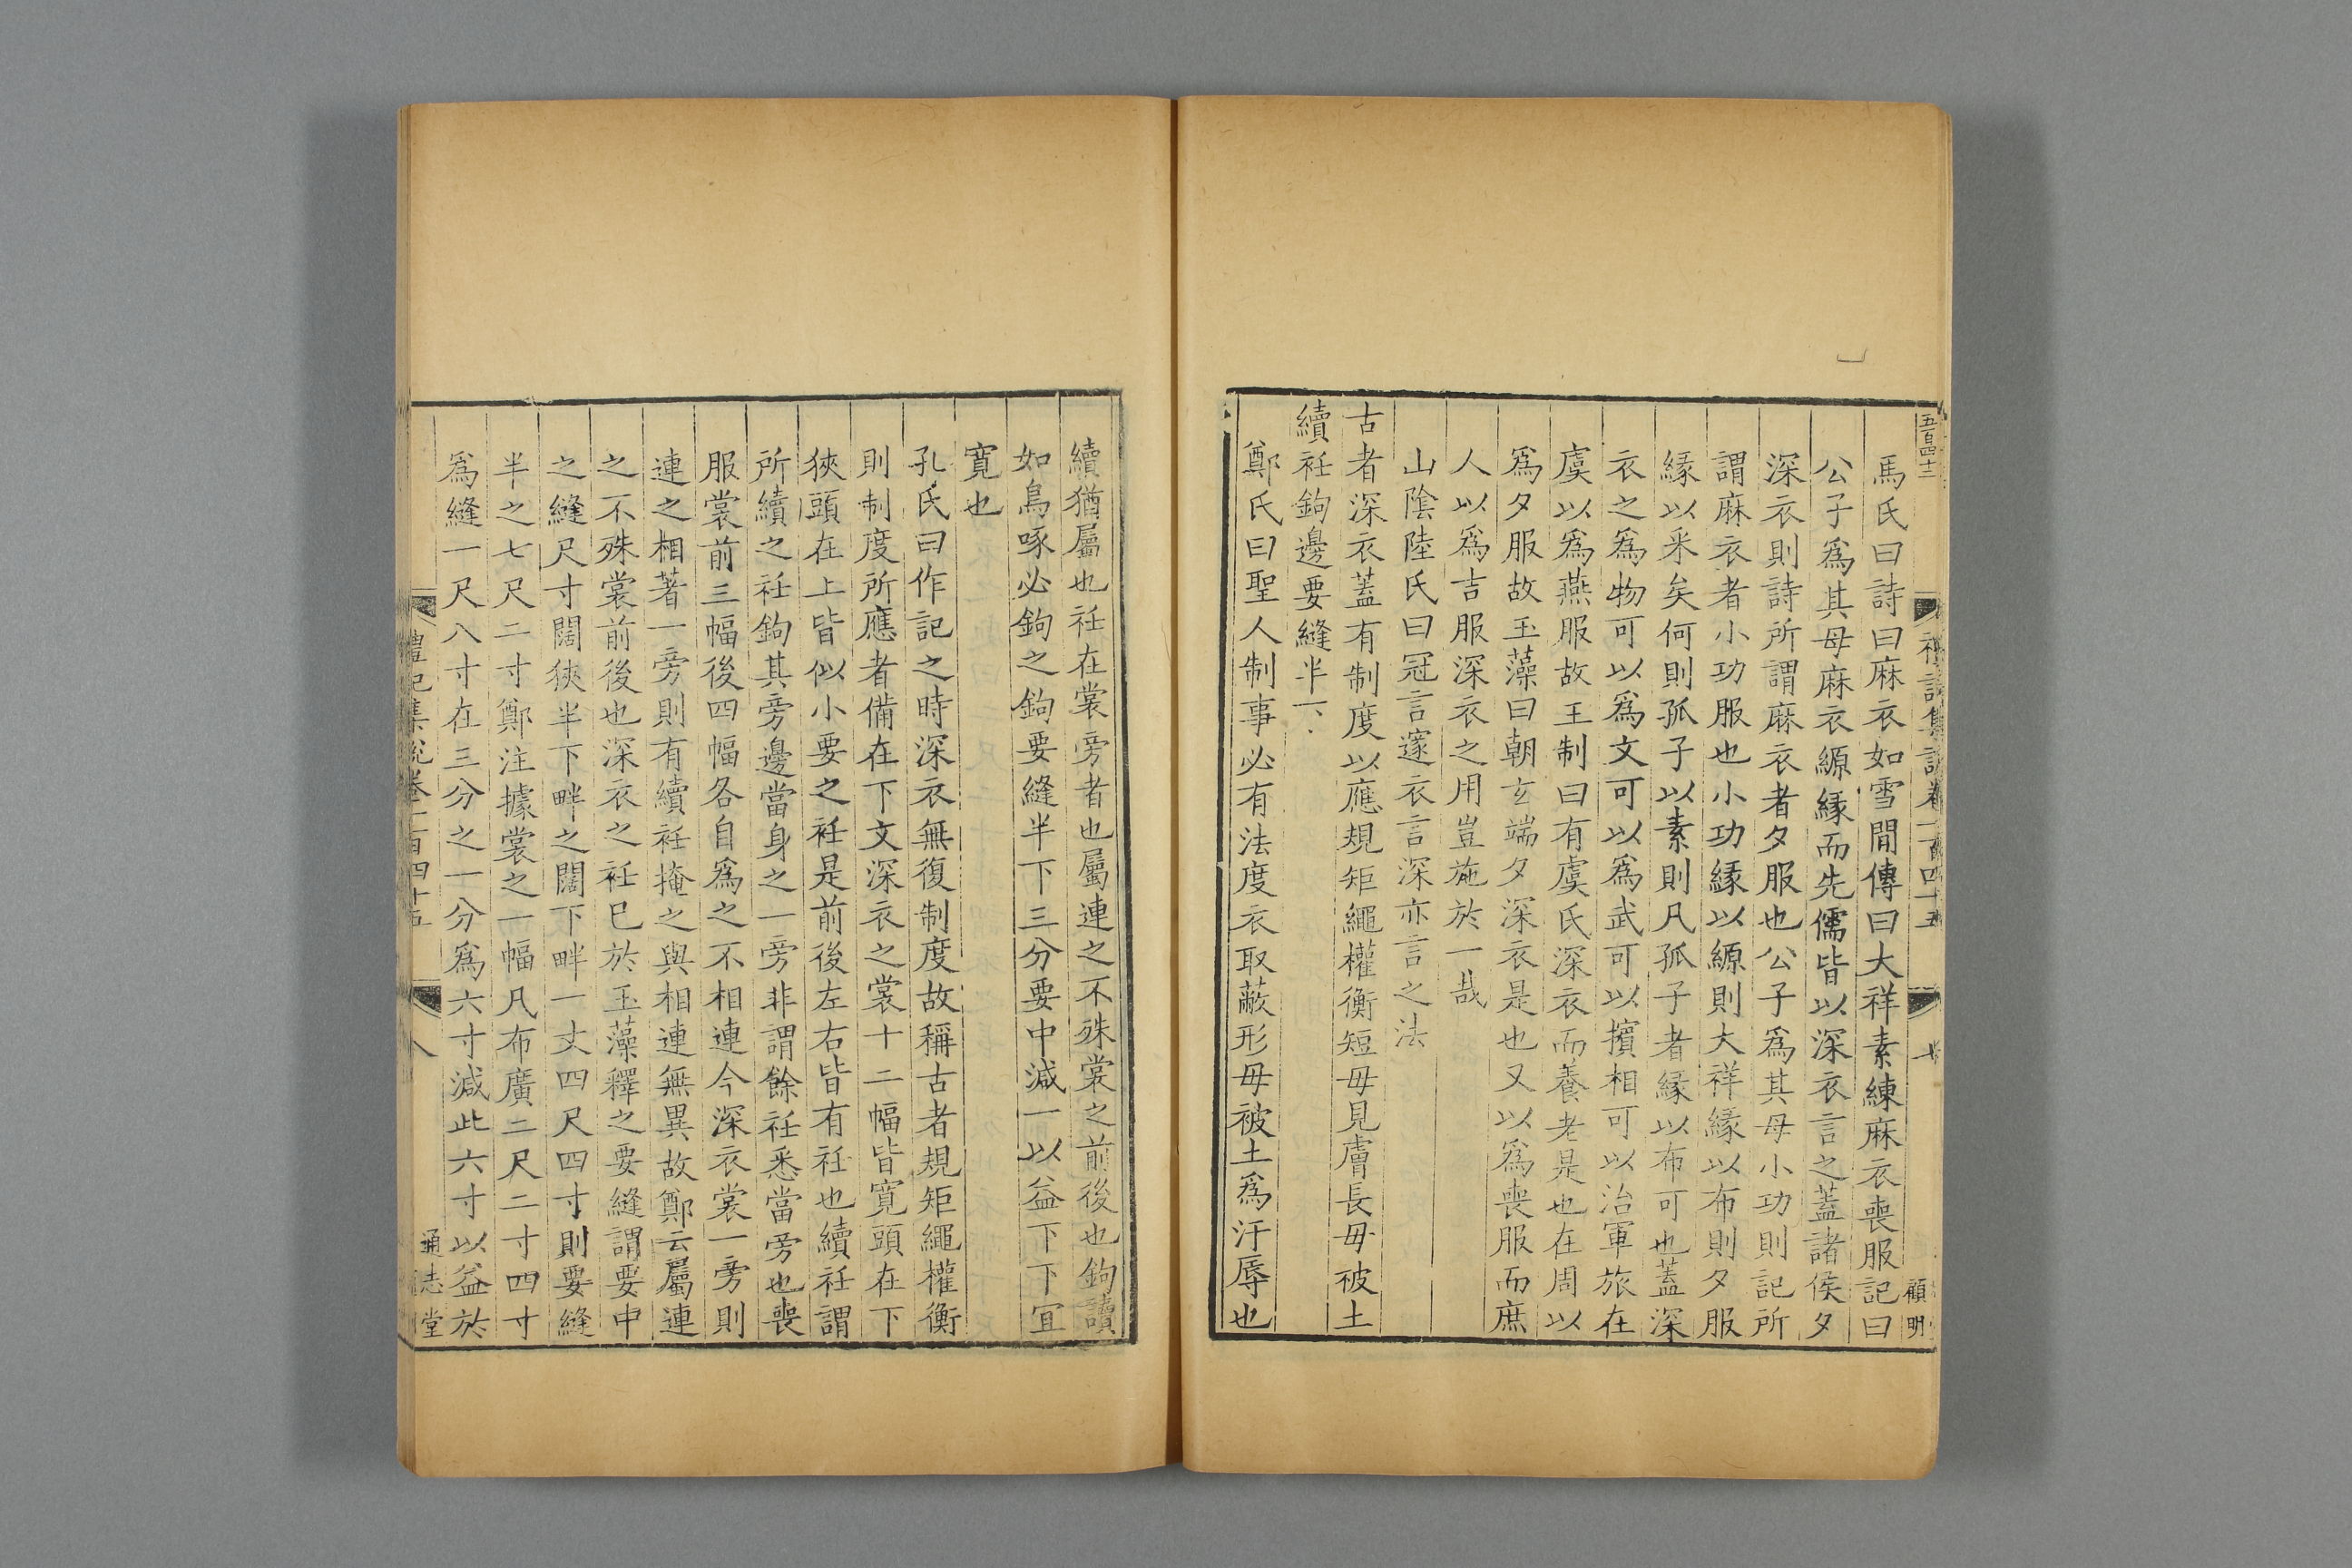 五百四十三
禮記集說卷一百四十五
七
顧明
馬氏曰詩曰麻衣如雪閒傳曰大祥素練麻衣喪服記曰
公子爲其母麻衣縓緣而先儒皆以深衣言之蓋諸侯夕
深衣則詩所謂麻衣者夕服也公子爲其母小功則記所
謂麻衣者小功服也小功緣以縓則大祥緣以布則夕服
緣以采矣何則孤子以素則凡孤子者緣以布可也蓋深
衣之爲物可以爲文可以爲武可以擯相可以治軍旅在
虞以爲燕服故王制曰有虞氏深衣而養老是也在周以
爲夕服故玉藻曰朝玄端夕深衣是也又以爲喪服而庶
人以爲吉服深衣之用豈施於一哉
山陰陸氏曰冠言邃衣言深亦言之法
古者深衣蓋有制度以應規矩繩權衡短毋見膚長毋被土
續衽鉤邊要縫半下
鄭氏曰聖人制事必有法度衣取蔽形毋被土爲汙辱也
續猶屬也衽在裳旁者也屬連之不殊裳之前後也鉤讀
如鳥啄必鉤之鉤要縫半下三分要中減一以益下下宜
寬也
孔氏曰作記之時深衣無復制度故稱古者規矩繩權衡
則制度所應者備在下文深衣之裳十二幅皆寬頭在下
狹頭在上皆似小要之衽是前後左右皆有衽也續衽謂
所續之衽鉤其旁邊當身之一旁非謂餘衽悉當旁也喪
服裳前三幅後四幅各自爲之不相連今深衣裳一旁則
連之相著一旁則有續衽掩之與相連無異故鄭云屬連
之不殊裳前後也深衣之衽已於玉藻釋之要縫謂要中
之縫尺寸闊狹半下畔之闊下畔一丈四尺四寸則要縫
半之七尺二寸鄭注據裳之一幅凡布廣二尺二寸四寸
爲縫一尺八寸在三分之一分爲六寸減此六寸以益於
禮記集說卷一百四十五
八
通志堂